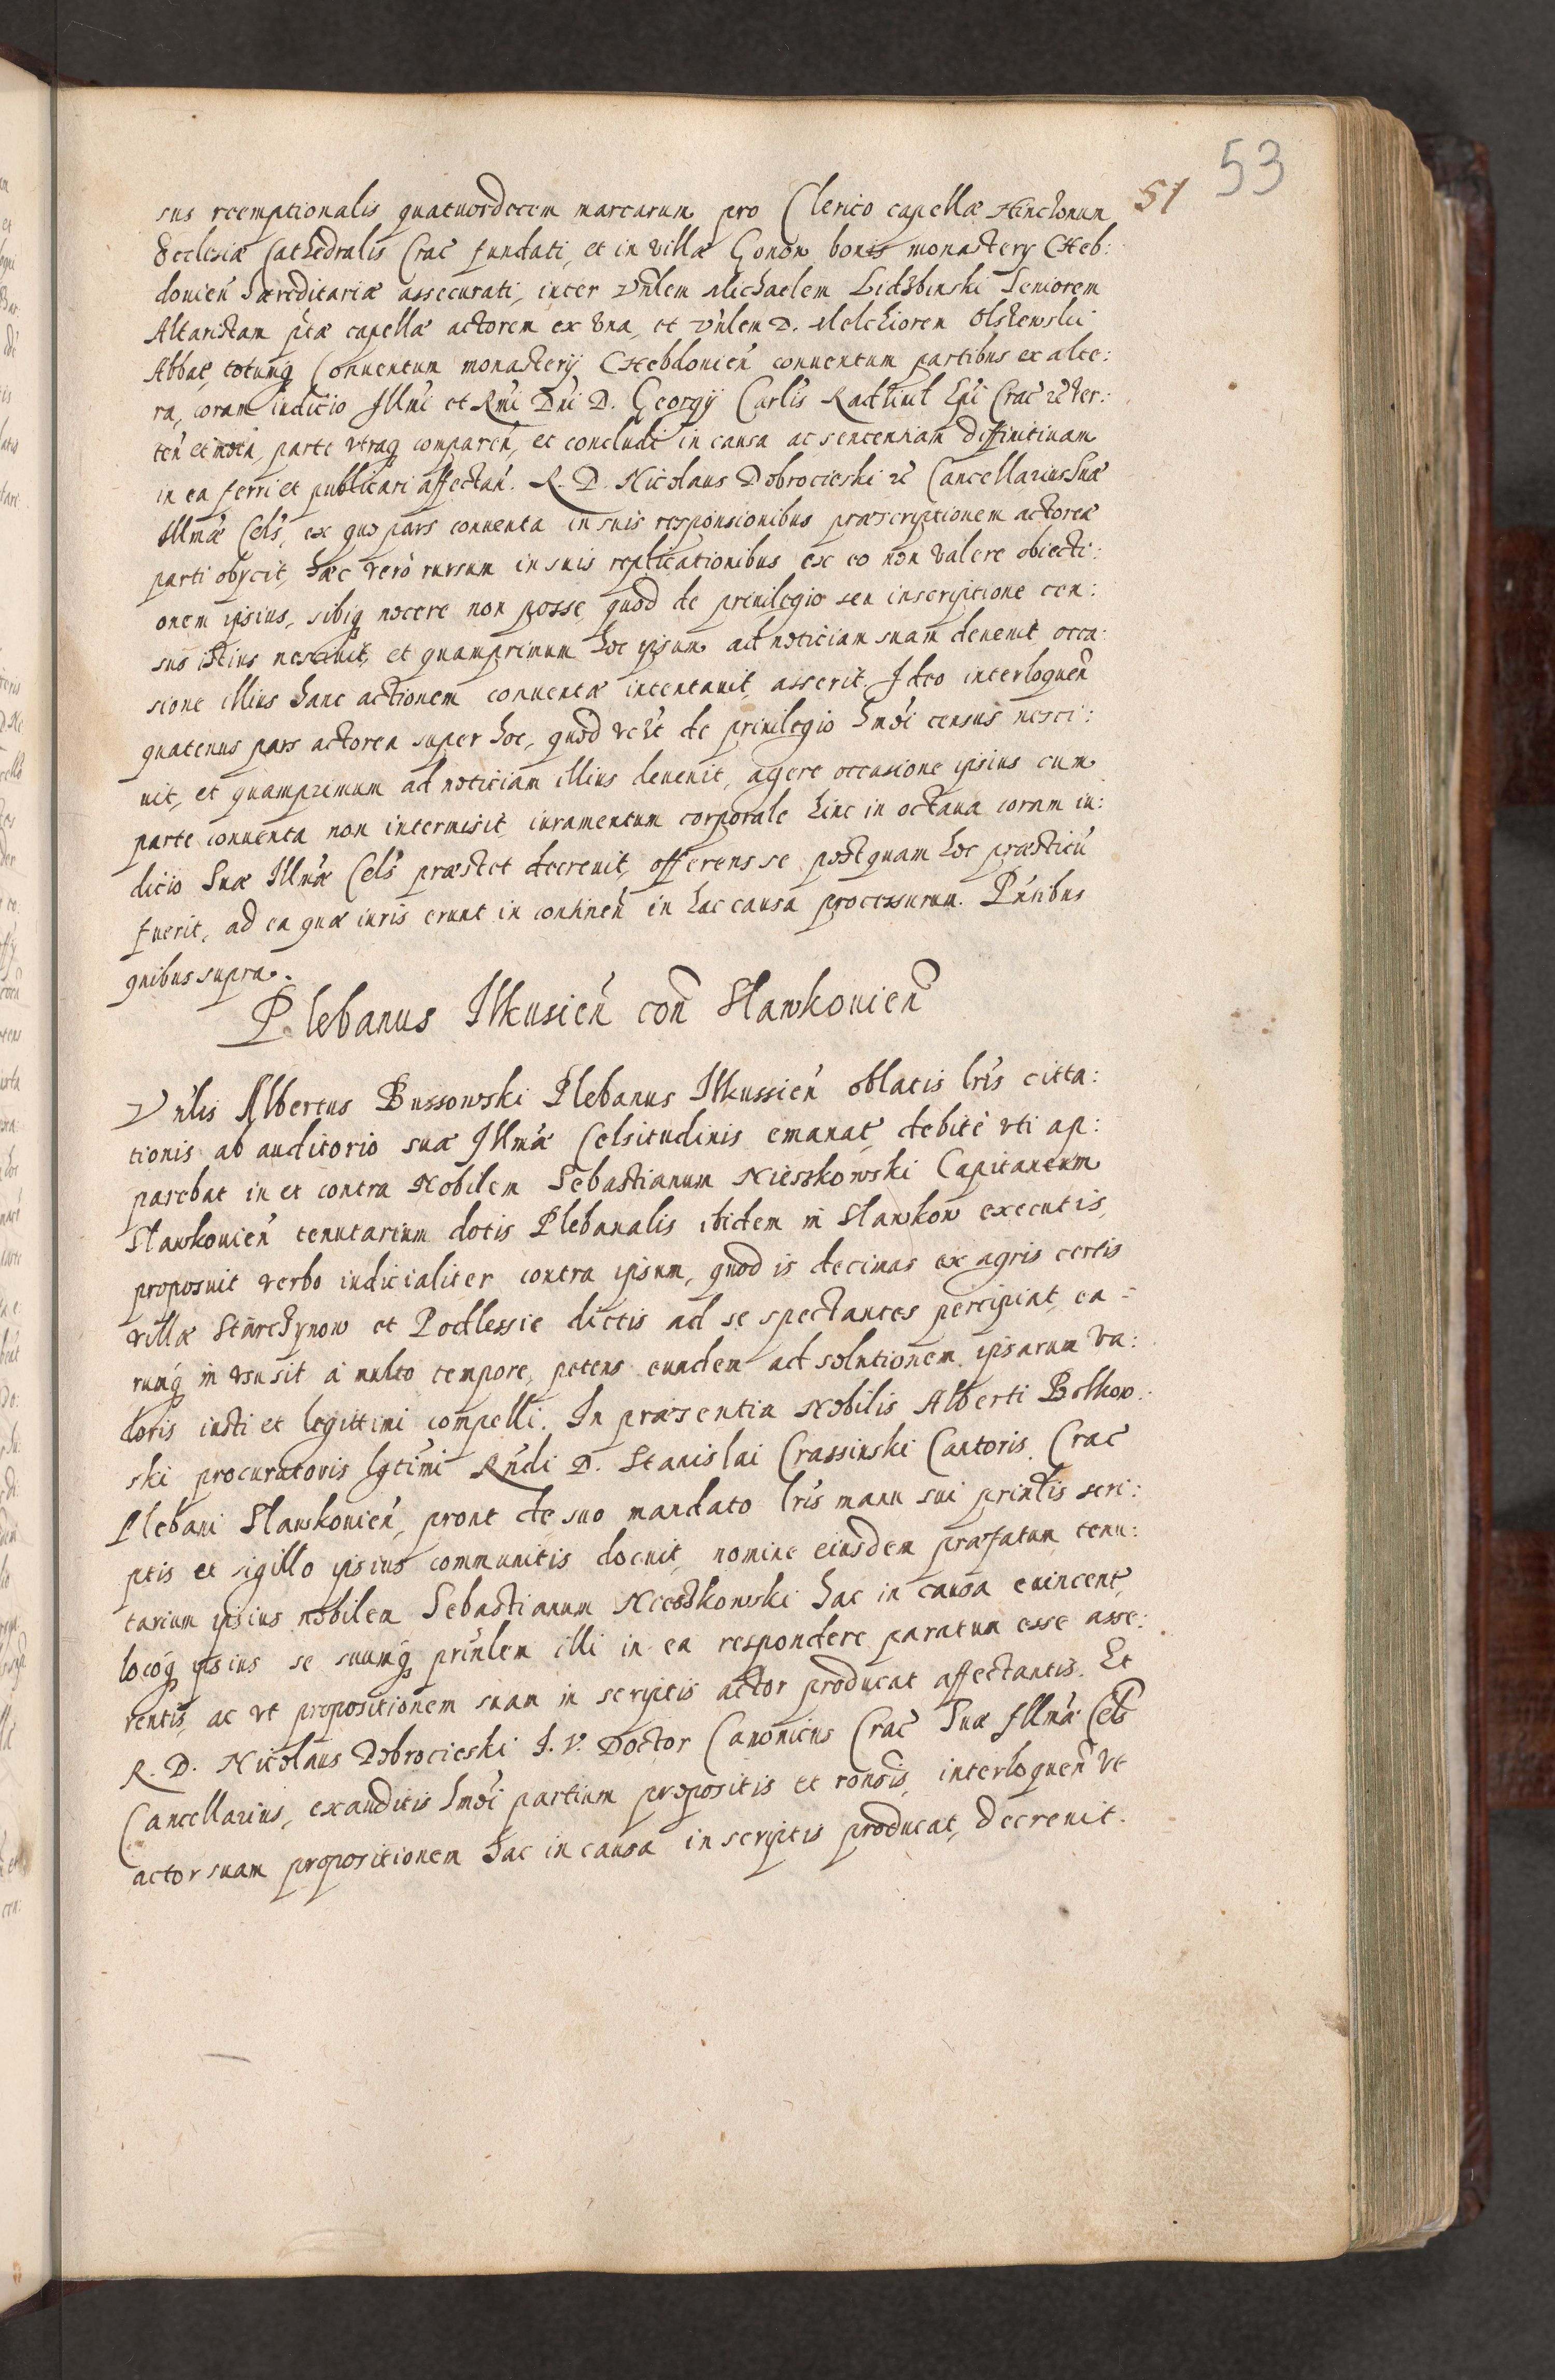 53
51
sus reemptionalis quatuordecem marcarum pro Clerico capellæ Hinczonum
Ecclesiæ Cathedralis Crac̄ fundati, et in villa Gonon bonis monastery CHeb:
douień hæreditariæ assecurati, inter Vńlem Michaelem Lidzbinski Seniorem
Altaristam ṕtæ capellæ actorem ex vna, et Vńlem D. Melchiorem Olszewski
Abbat̃, totumq̃ Conuentum monasterij CHebdouień conuentum partibus ex alte:
ra, coram iudicio Illmi et Rmi Dńi D. Georgij Carlis Radziuil Epi Crac̄ &
parte vtraq̃ compareń, et concludi in causa ac sententiam diffinitiuam
in ea ferri et publicari affectań. R. D. Nicolaus Dobrocieski &c Cancellarius Suæ
Illmæ Cels̃, ex quo pars conuenta in suis responsionibus præscriptionem actoreæ
parti obycit, hæc verò rursum in suis replicationibus ex eo non valere obiecti:
onem ipsius, sibiq̃ nocere non posse, quod de preuilegio seu inscriptione cen:
sus istius nesciuit, et quamprimum hoc ipsum ad noticiam suam deuenit, occa:
sione illius hanc actionem conuentæ intentauit, asserit. Ideo interloqueń
quatenus pars actorea super hoc, quod de priuilegio hmõi census nesci:
uit, et quamprimum ad noticiam illius deuenit, agere occasione ipsius cum
parte conuenta non intermisit, iuramentum corporale hinc in octaua coram iu:
dicio Suæ Illmæ Cels̃ præstet decreuit, offerens se postquam hoc præstitũ
fuerit, ad ea quæ iuris erunt in continen̄ in hac causa processurum. Pńtibus
quibus supra.
Plebanus Ilkusień con̄ Slawkouień
Vńlis Albertus Bussowski Plebanus Ilkussień oblatis lrĩs citta:
tionis ab auditorio suæ Illmæ Celsitudinis emanat̃, debitè vti ap:
parebat in et contra Nobilem Sebastianum Nieszkowski Capitaneum
Slawkouień tenutarium dotis Plebanalis ibidem in Slawkow executis,
proposuit verbo iudicialiter contra ipsum, quod is decimas ex agris certis
villæ Starchynow et Podlessie dictis ad se spectantes percipiat, ea -
rumq̃ in vsu sit à multo tempore, petens eundem ad solutionem ipsarum va:
loris iusti et legittimi compelli. In præsentia Nobilis Alberti Bolkow:
ski procuratoris lgtimi Rńdi D. Stanislai Crassinski Cantoris Crac̄
Plebani Slawkouień, prout de suo mandato lrĩs manu sui prinlis scri:
ptis et sigillo ipsius communitis docuit, nomine eiusdem præfatum tenu:
tarium ipsius nobilem Sebastianum Nieszkowski hac in causa euincent̃,
locoq̃ ipsius se suumq̃ prinlem illi in ea respondere paratum esse asse:
rentis, ac vt propositionem suam in scriptis actor producat affectantis. Et
R. D. Nicolaus Dobrocieski I. V. Doctor Canonicus Crac̄ Suæ Illmæ Cels̃
Cancellarius, exauditis hmõi partium propositis et ronsis, interloqueń vt
actor suam propositionem hac in causa in scriptis producat, decreuit.